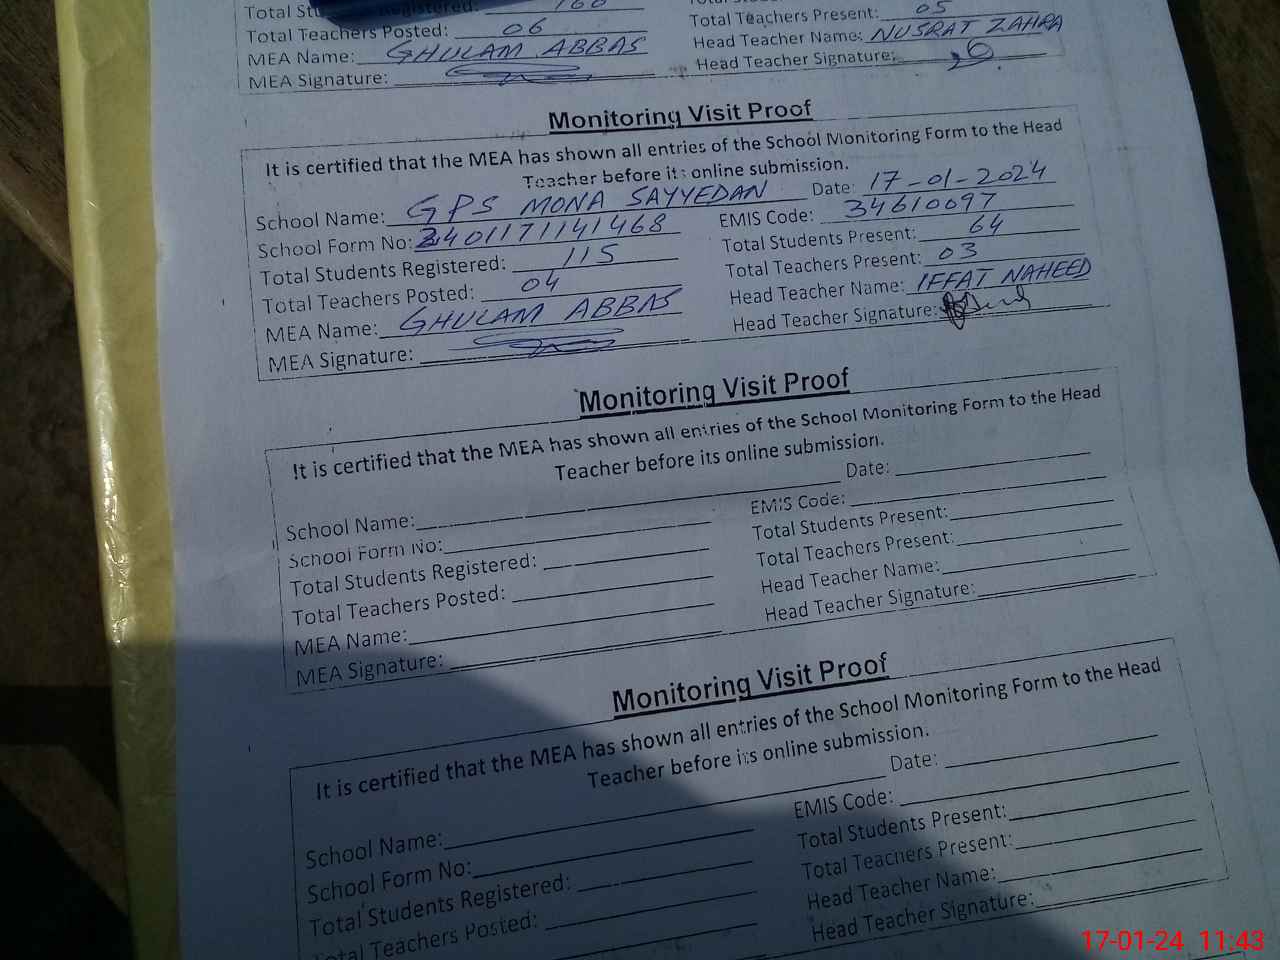 Total Teachers Posted: 06
MEA Name: GHULAM ABBAS
MEA Signature:
Total Teachers Present: 05
Head Teacher Name: NUSRAT ZAHRA
Head Teacher Signature:
Monitoring Visit Proof
It is certified that the MEA has shown all entries of the School Monitoring Form to the Head
Teacher before its online submission.
School Name: GPS MONA SAYYEDAN Date: 17-01-2024
School Form No: 3401171141468 EMIS Code: 34610097
Total Students Registered: 115 Total Students Present: 64
Total Teachers Posted: 04 Total Teachers Present: 03
MEA Name: GHULAM ABBAS Head Teacher Name: IFFAT NAHEED
MEA Signature: Head Teacher Signature:
Monitoring Visit Proof
It is certified that the MEA has shown all entries of the School Monitoring Form to the Head
Teacher before its online submission.
School Name: Date:
School Form No: EMIS Code:
Total Students Registered: Total Students Present:
Total Teachers Posted: Total Teachers Present:
MEA Name: Head Teacher Name:
MEA Signature: Head Teacher Signature:
Monitoring Visit Proof
It is certified that the MEA has shown all entries of the School Monitoring Form to the Head
Teacher before its online submission.
Date:
School Name: EMIS Code:
School Form No: Total Students Present:
Total Students Registered: Total Teachers Present:
Total Teachers Posted: Head Teacher Name:
Head Teacher Signature:
17-01-24 11:43